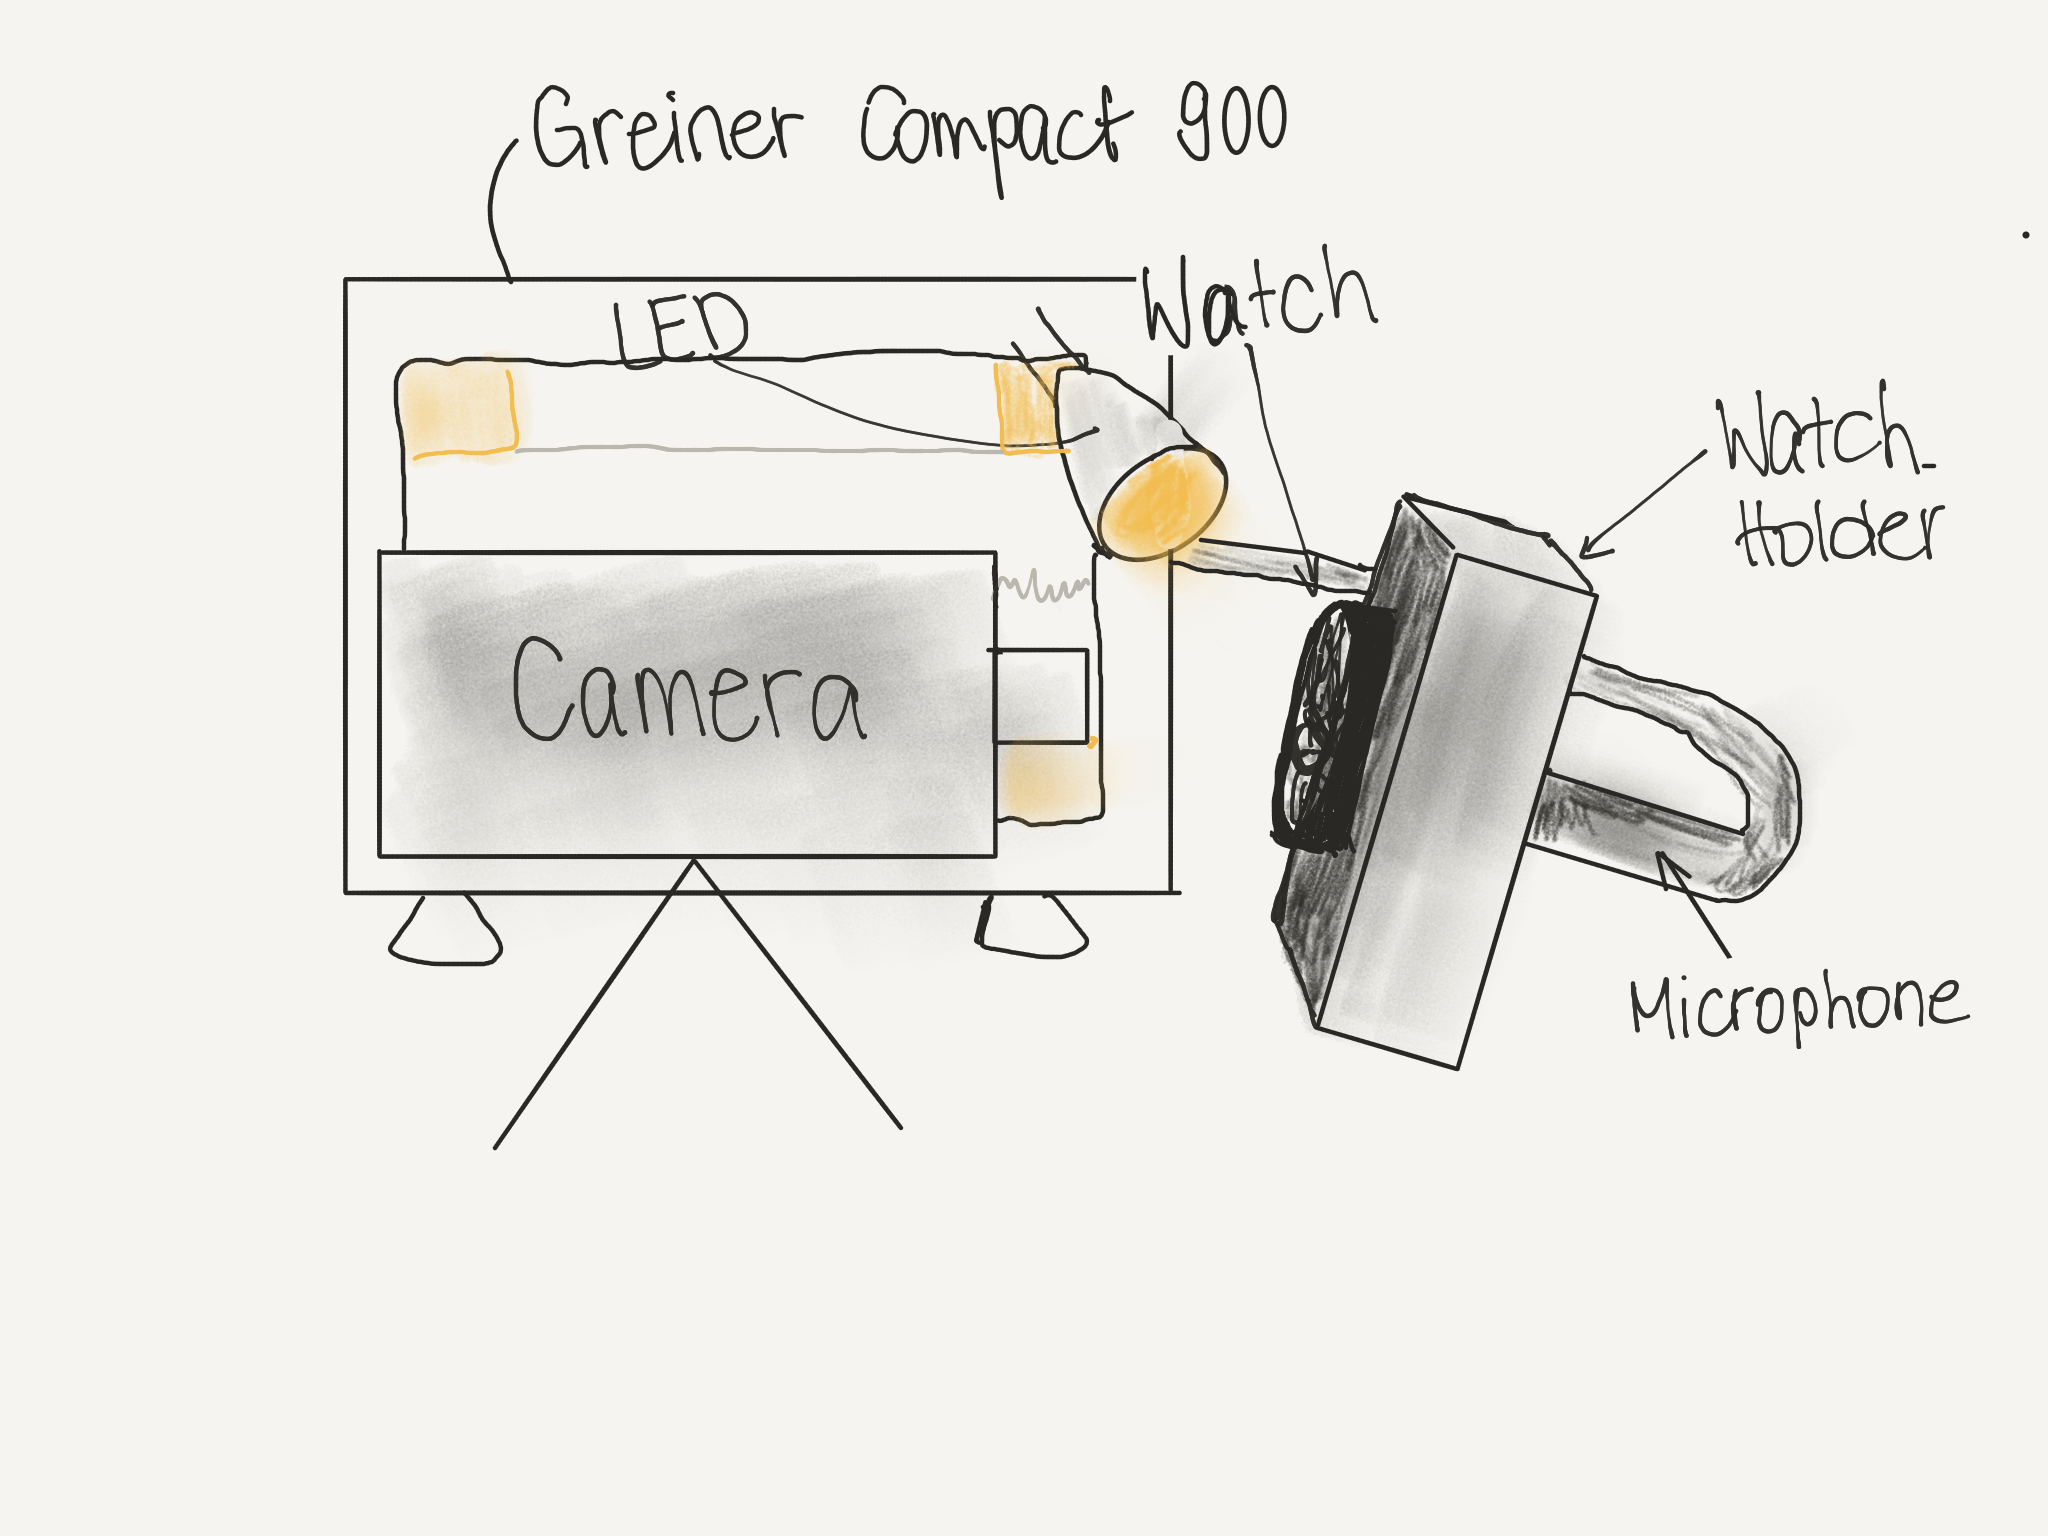 Greiner Compact 900
LED
Watch
Watch-
Holder
Camera
Microphone